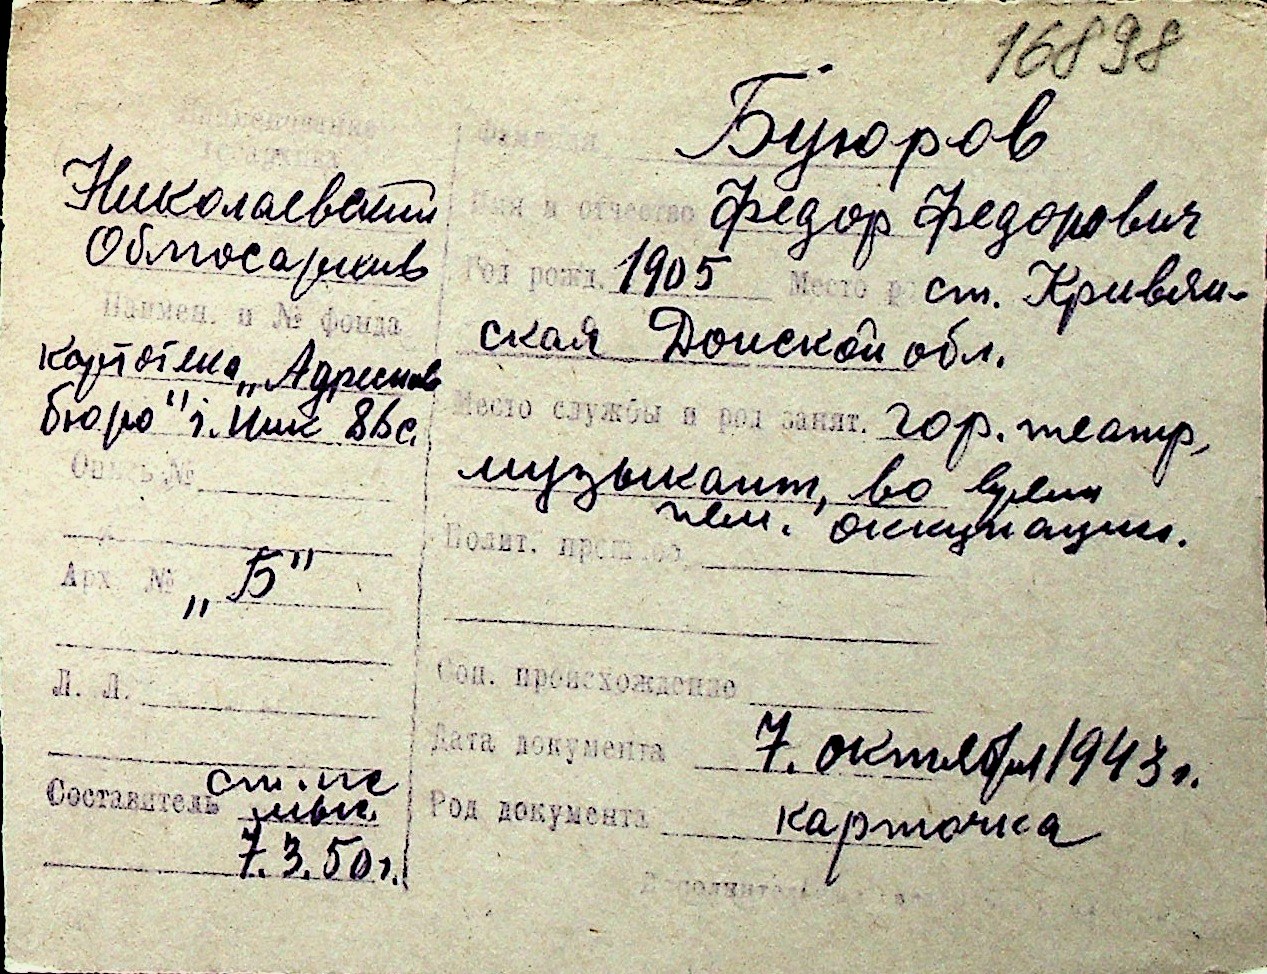 16898
Наименование
госархива
Николаевский
Облгосархив
Наимен. и № фонда
картотека „Адресное
бюро"
Опись №
Арх. № „Б"
Л. Л.
Составитель
7.3.50 г.
Фамилия Буюров
Имя и отчество Федор Федорович
Год рожд. 1905 Место ст. Кривян-
ская Донской обл.
Место службы и род занят. гор. театр,
музыкант, во время
нем. оккупации.
Полит. прошлое
Соц. происхождение
Дата документа 7. октября 1943 г.
Род документа карточка